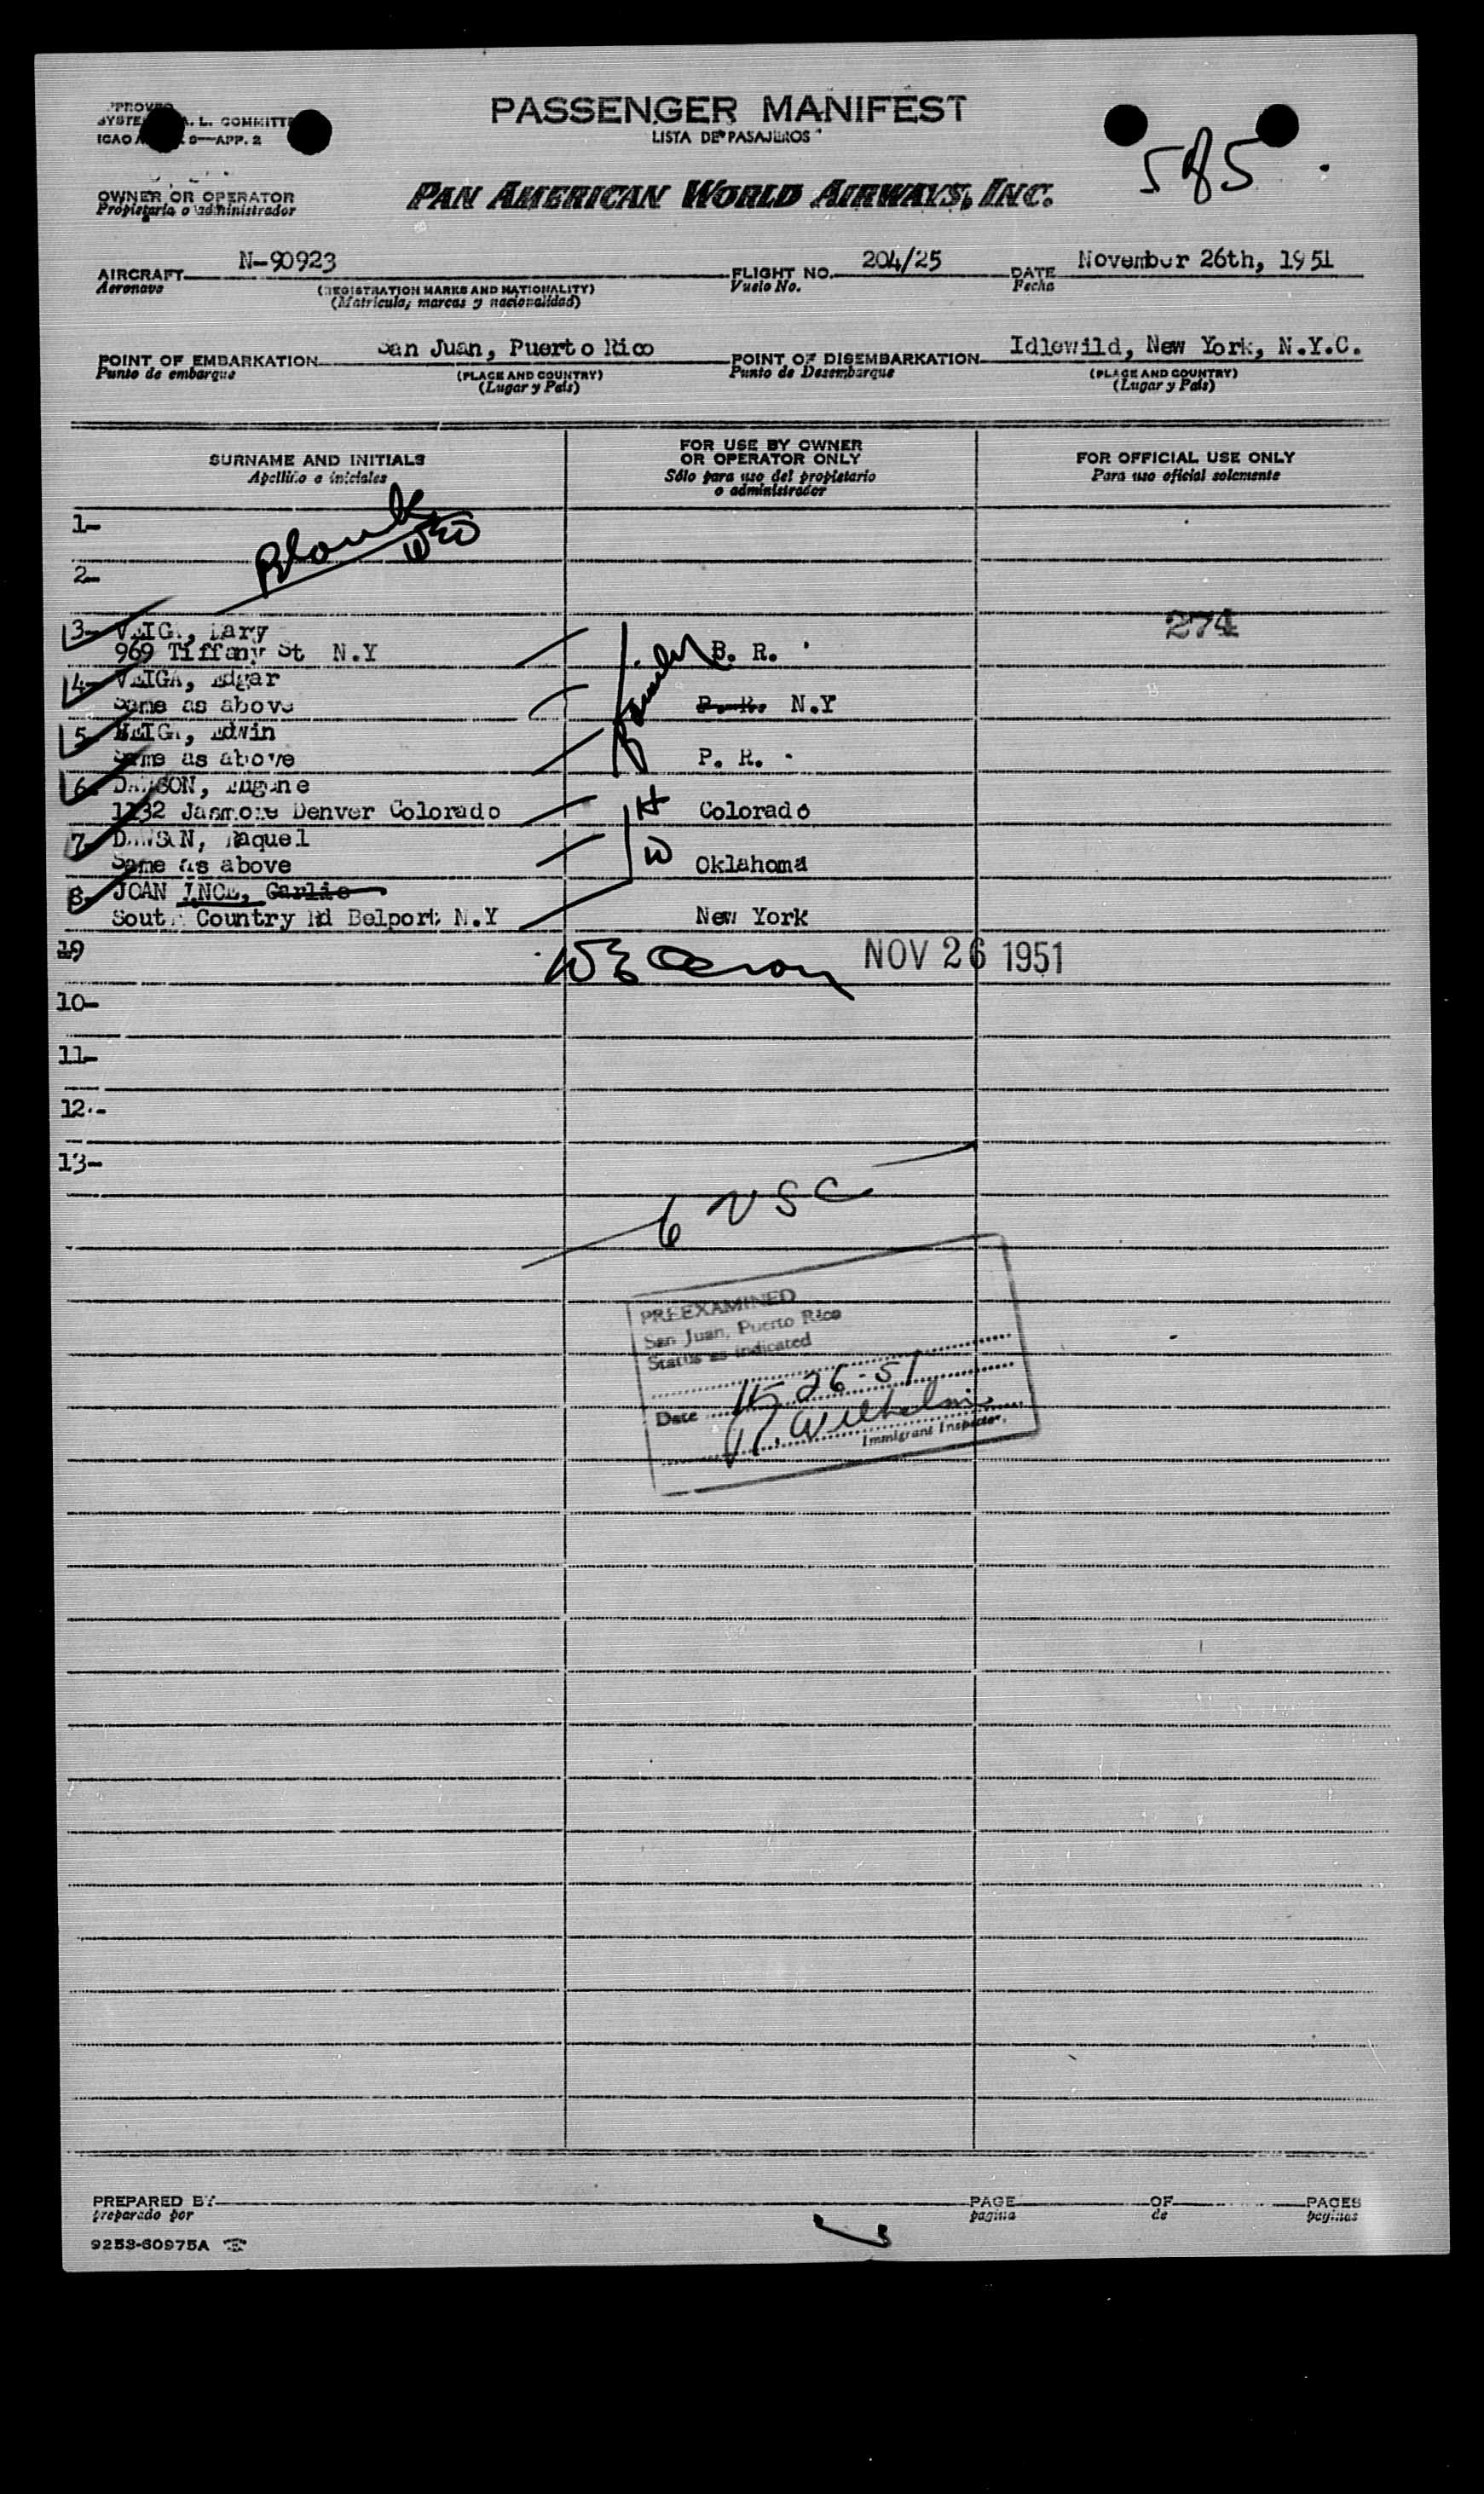 PASSENGER MANIFEST
LISTA DE PASAJEROS
ICAO
S—APP. 2
5 of 5
OWNER OR OPERATOR
Propietario o administrador
PAN AMERICAN WORLD AIRWAYS, INC.
AIRCRAFT N-90923 FLIGHT NO. 204/25 DATE November 26th, 1951
Aeronave (REGISTRATION MARKS AND NATIONALITY) Vuelo No. Fecha
(Matricula, marcas y nacionalidad)
POINT OF EMBARKATION San Juan, Puerto Rico POINT OF DISEMBARKATION Idlewild, New York, N.Y.C.
Punto de embarque (PLACE AND COUNTRY) Punto de Desembarque (PLACE AND COUNTRY)
(Lugar y País) (Lugar y País)
SURNAME AND INITIALS FOR USE BY OWNER OR OPERATOR ONLY FOR OFFICIAL USE ONLY
Apellido e iniciales Sólo para uso del propietario o administrador Para uso oficial solemente
1-
Blank
2-
3- VEIGA, Mary 274
969 Tiffany St N.Y P. R.
4- VEIGA, Edgar
Same as above P. R. N.Y
5- VEIGA, Edwin
Same as above P. R.
6- DAWSON, Eugene
1132 Jasmore Denver Colorado H Colorado
7- DAWSON, Raquel
Same as above W Oklahoma
8- JOAN INCE, Garlic
South Country Rd Belport N.Y New York
9
NOV 26 1951
10-
11-
12-
13-
6 USC
PREEXAMINED
San Juan, Puerto Rico
Status as indicated
Date 11-26-51
Wilhelmi
Immigrant Inspector.
PREPARED BY PAGE OF PAGES
preparado por pagina de paginas
9253-60975A